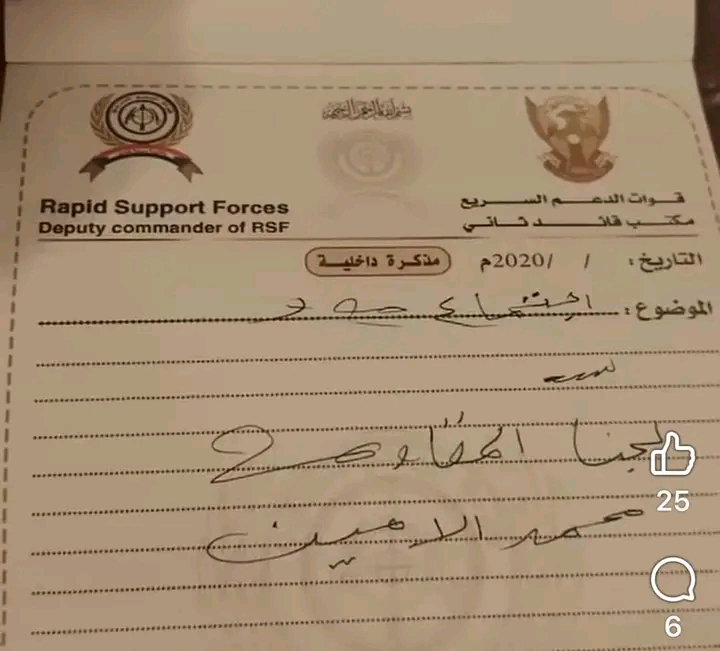 بسم الله الرحمن الرحيم
قوات الدعم السريع
مكتب قائد ثاني
Rapid Support Forces
Deputy commander of RSF
التاريخ: / /2020م
مذكرة داخلية
الموضوع: اجتماع
لجنا المقاومة
محمد الامين
25
6